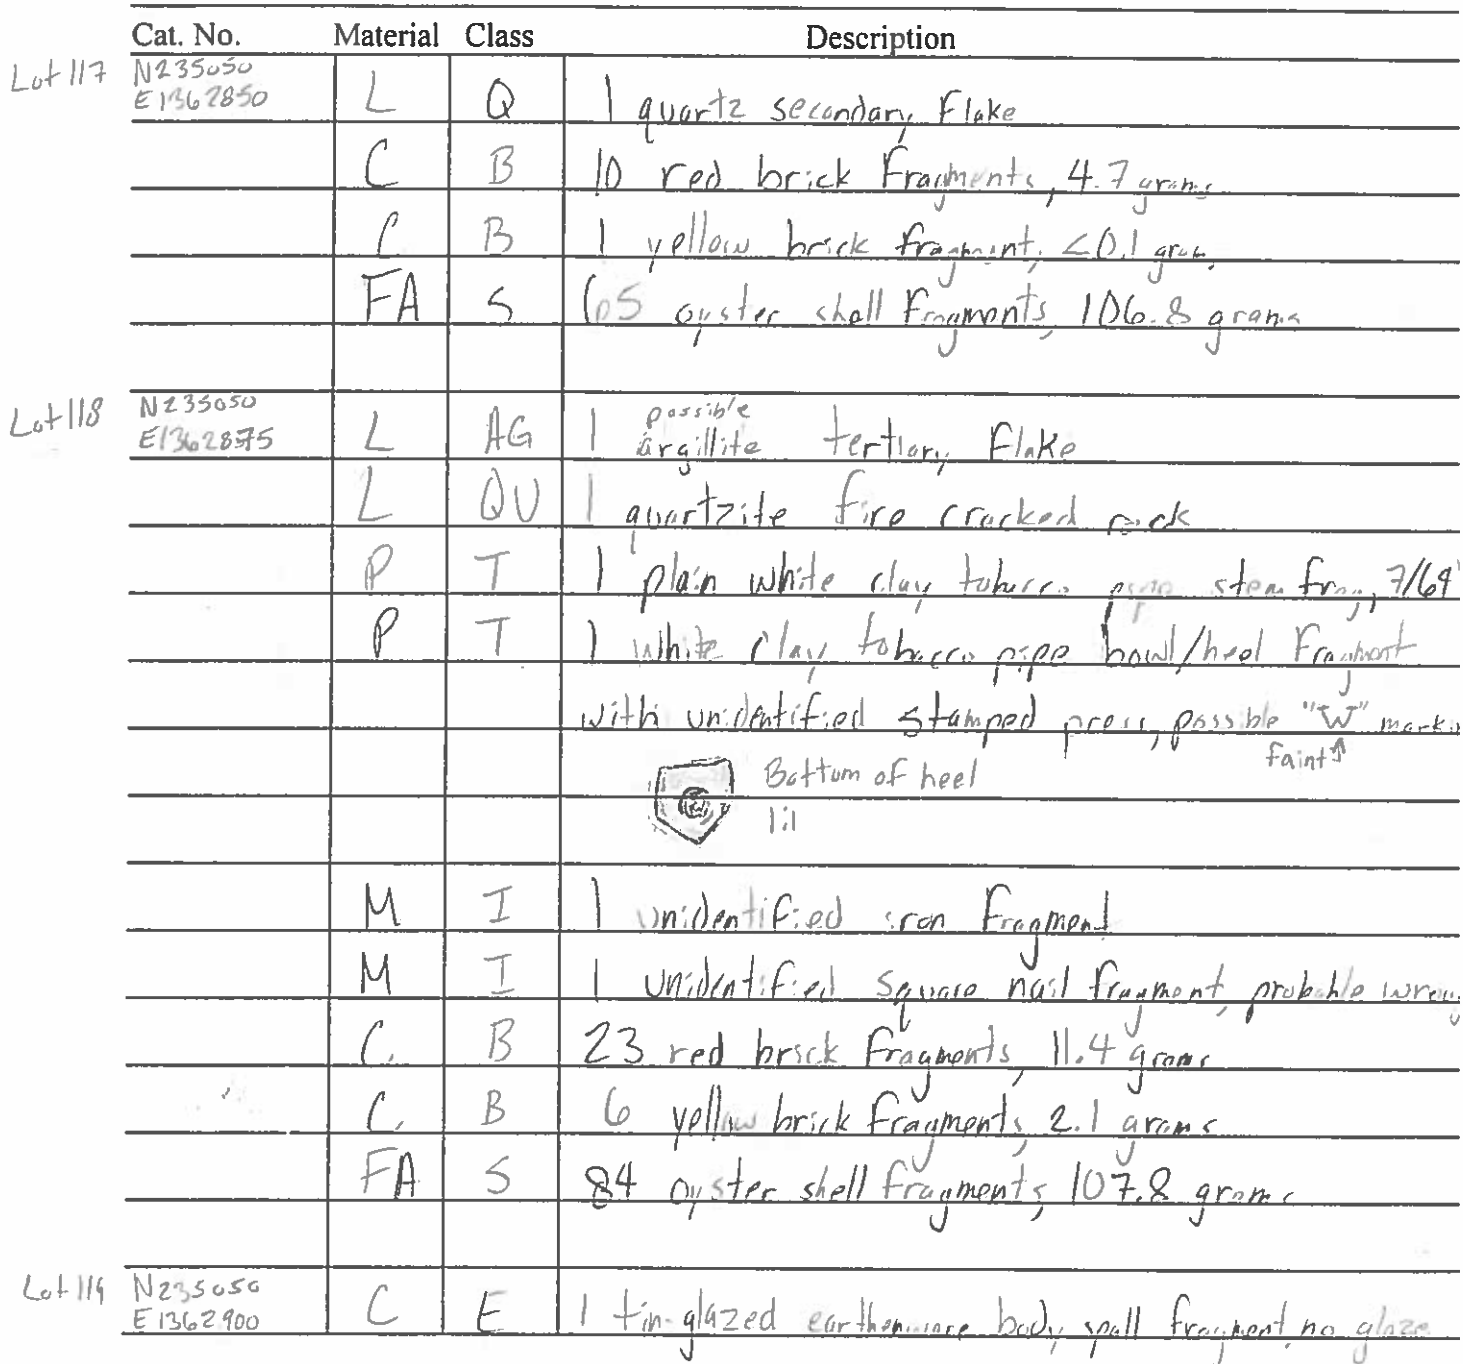 Cat. No. Material Class Description
Lot 117 N235050
E1362850 L Q 1 quartz secondary Flake
C B 10 red brick Fragments, 4.7 grams
C B 1 yellow brick fragment, <0.1 gram
FA S 65 oyster shell Fragments, 106.8 grams
Lot 118 N235050
E1362875 L AG 1 possible argillite tertiary Flake
L QU 1 quartzite fire cracked rock
P T 1 plain white clay tobacco pipe stem frag, 7/64"
P T 1 white clay tobacco pipe bowl/heel Fragment
with unidentified stamped press, possible "W"
faint↑
Bottom of heel
1:1
M I 1 unidentified iron Fragment
M I 1 unidentified square nail fragment, probable
C B 23 red brick fragments, 11.4 grams
C B 6 yellow brick fragments, 2.1 grams
FA S 84 oyster shell fragments, 107.8 grams
Lot 119 N235050
E1362900 C E 1 tin-glazed earthenware body spall fragment, no glaze